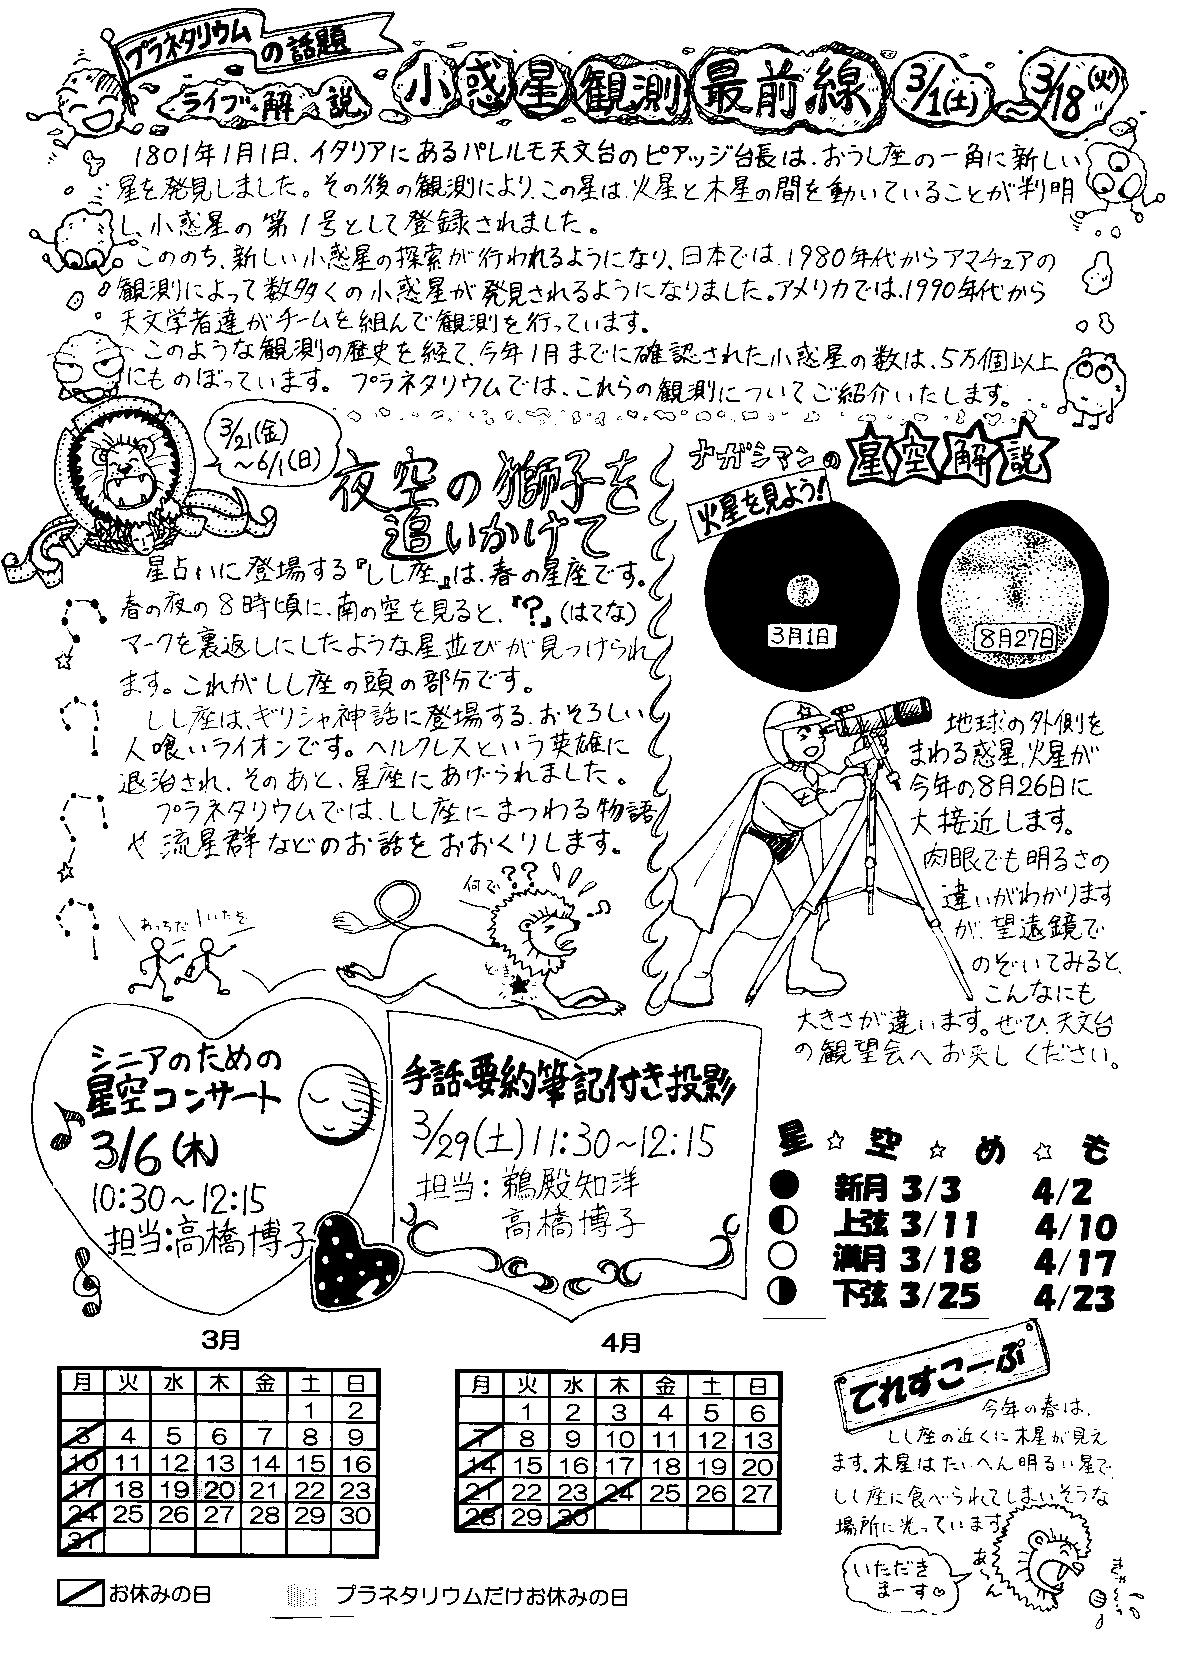 プラネタリウムの話題
ライブ解説
小惑星観測最前線 3/1(土)〜3/18(火)
1801年1月1日、イタリアにあるパレルモ天文台のピアッジ台長は、おうし座の一角に新しい
星を発見しました。その後の観測により、この星は、火星と木星の間を動いていることが判明
し、小惑星の第1号として登録されました。
こののち、新しい小惑星の探索が行われるようになり、日本では、1980年代からアマチュアの
観測によって数多くの小惑星が発見されるようになりました。アメリカでは、1990年代から
天文学者達がチームを組んで観測を行っています。
このような観測の歴史を経て、今年1月までに確認された小惑星の数は、5万個以上
にものぼっています。プラネタリウムでは、これらの観測についてご紹介いたします。
3/21(金)
〜6/1(日)
夜空の獅子を
追いかけて
星占いに登場する『しし座』は、春の星座です。
春の夜の8時頃に、南の空を見ると、『?』(はてな)
マークを裏返しにしたような星並びが見つけられ
ます。これがしし座の頭の部分です。
しし座は、ギリシャ神話に登場する、おそろしい
人喰いライオンです。ヘルクレスという英雄に
退治され、そのあと、星座にあげられました。
プラネタリウムでは、しし座にまつわる物語
や流星群などのお話をおおくりします。
あっちだ
いたぞ
何で??
どき
ナガシマンの星空解説
火星を見よう!
3月1日
8月27日
地球の外側を
まわる惑星、火星が
今年の8月26日に
大接近します。
肉眼でも明るさの
違いがわかります
が、望遠鏡で
のぞいてみると、
こんなにも
大きさが違います。ぜひ、天文台
の観望会へお来しください。
シニアのための
星空コンサート
3/6(木)
10:30〜12:15
担当:高橋博子
手話・要約筆記付き投影
3/29(土)11:30〜12:15
担当:鵜殿知洋
高橋博子
星☆空☆め☆も
新月 3/3 4/2
上弦 3/11 4/10
満月 3/18 4/17
下弦 3/25 4/23
3月
月 火 水 木 金 土 日
1 2
3 4 5 6 7 8 9
10 11 12 13 14 15 16
17 18 19 20 21 22 23
24 25 26 27 28 29 30
31
4月
月 火 水 木 金 土 日
1 2 3 4 5 6
7 8 9 10 11 12 13
14 15 16 17 18 19 20
21 22 23 24 25 26 27
28 29 30
お休みの日
プラネタリウムだけお休みの日
てれすこーぷ
今年の春は、
しし座の近くに木星が見え
ます。木星はたいへん明るい星で、
しし座に食べられてしまいそうな
場所に光っています。
いただき
まーす♡
あ〜ん
きゃ〜